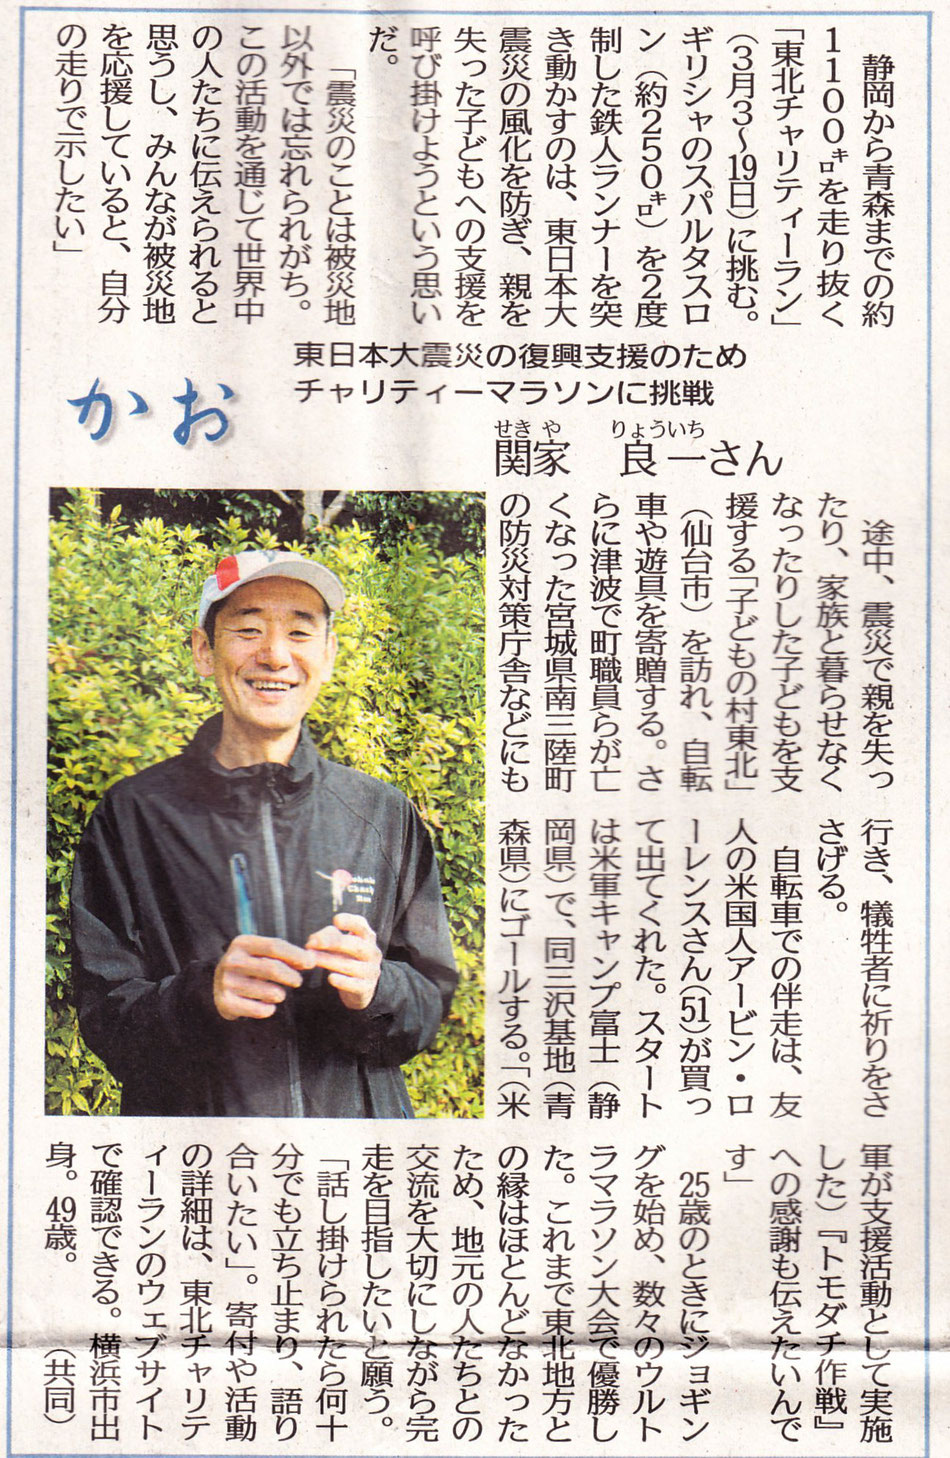 静岡から青森までの約
1100㌔を走り抜く
「東北チャリティーラン」
(3月3〜19日)に挑む。
ギリシャのスパルタスロ
ン(約250㌔)を2度
制した鉄人ランナーを突
き動かすのは、東日本大
震災の風化を防ぎ、親を
失った子どもへの支援を
呼び掛けようという思い
だ。
「震災のことは被災地
以外では忘れられがち。
この活動を通じて世界中
の人たちに伝えられると
思うし、みんなが被災地
を応援していると、自分
の走りで示したい」
東日本大震災の復興支援のため
チャリティーマラソンに挑戦
かお
せきや りょういち
関家 良一さん
途中、震災で親を失っ
たり、家族と暮らせなく
なったりした子どもを支
援する「子どもの村東北」
(仙台市)を訪れ、自転
車や遊具を寄贈する。さ
らに津波で町職員らが亡
くなった宮城県南三陸町
の防災対策庁舎などにも
行き、犠牲者に祈りをさ
さげる。
自転車での伴走は、友
人の米国人アービン・ロ
ーレンスさん(51)が買っ
て出てくれた。スタート
は米軍キャンプ富士(静
岡県)で、同三沢基地(青
森県)にゴールする。「(米
軍が支援活動として実施
した)『トモダチ作戦』
への感謝も伝えたいんで
す」
25歳のときにジョギン
グを始め、数々のウルト
ラマラソン大会で優勝し
た。これまで東北地方と
の縁はほとんどなかった
ため、地元の人たちとの
交流を大切にしながら完
走を目指したいと願う。
「話し掛けられたら何十
分でも立ち止まり、語り
合いたい」。寄付や活動
の詳細は、東北チャリテ
ィーランのウェブサイト
で確認できる。横浜市出
身。49歳。
(共同)